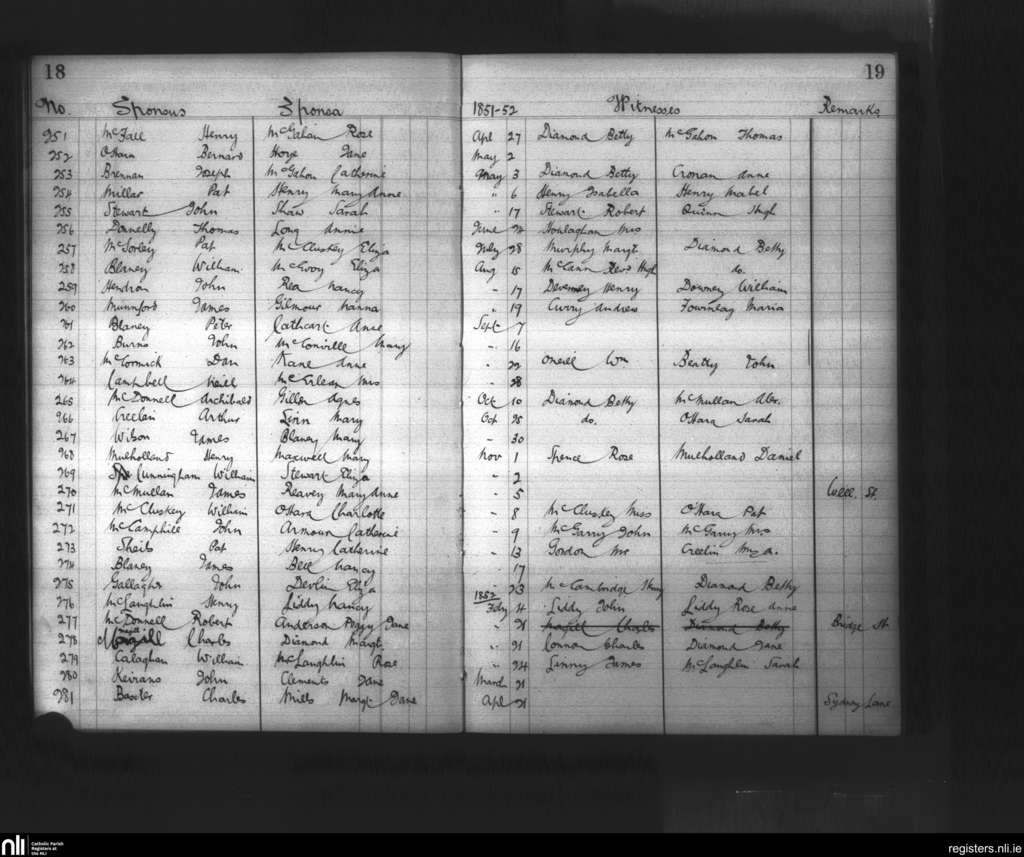 18 19
No. Sponsus Sponsa 1851-52 Witnesses Remarks
251 McFall Henry McGahon Rose Apl 27 Diamond Betty McGahon Thomas
252 OHara Bernard Hoye Jane May 2
253 Brennan Joseph McGahon Catherine May 3 Diamond Betty Cronan Anne
254 Millar Pat Henry Mary Anne " 6 Henry Isabella Henry Mabel
255 Stewart John Shaw Sarah " 17 Stewart Robert Quinn Hugh
256 Donnelly Thomas Long Annie June 24 Houlaghan Mrs
257 McSorley Pat McCluskey Eliza July 28 Murphy Margt Diamond Betty
258 Blaney William McEvoy Eliza Aug 15 McCann Hugh do.
259 Hendron John Rea Nancy " 17 Henry Downey William
260 Mumford James Gilmour Hanna " 19 Curry Andrew Maria
261 Blaney Peter Cathcart Anne Sept 7
262 Burns John McConville Mary " 16
263 McCormick Dan Kane Anne " 22 Oneill Wm Beatty John
264 Campbell Neill McErlean Mrs " 28
265 McDonnell Archibald Gillon Agnes Oct 10 Diamond Betty McMullan Alex.
266 Creelin Arthur Linn Mary Oct 25 do. OHara Sarah
267 Wilson James Blaney Mary " 30
268 Mulholland Henry Maxwell Mary Nov 1 Spence Rose Mulholland Daniel
269 Cunningham William Stewart Eliza " 2
270 McMullan James Reavey Mary Anne " 5 Well. St.
271 McCluskey William OHara Charlotte " 8 McCluskey Miss O'Hara Pat
272 McCamphill John Armour Catherine " 9 McGarry John McGarry Mrs
273 Sheils Pat Henry Catherine " 13 Gordon Mr Creelin Mrs A.
274 Blaney James Bell Nancy " 17
275 Gallagher John Devlin Eliza " 23 McCambridge Diamond Betty
1852
276 McLaughlin Henry Liddy Nancy Feby 4 Liddy John Liddy Rose Anne
277 McDonnell Robert Anderson Peggy Jane " 21 Magill Charles Diamond Betty Bridge St.
278 Magill Charles Diamond Margt " 21 Connor Charles Diamond Jane
279 Calaghan William McLaughlin Rose " 24 Lanny James McLaughlin Sarah
280 Keirans John Clements Jane March 21
281 Baxter Charles Mills Margt Jane Apl 21 Sydney Lane
nli Catholic Parish Registers at the NLI registers.nli.ie